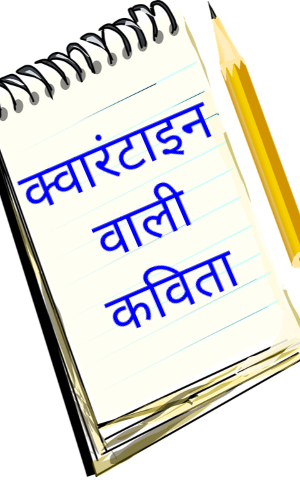 क्वारंटाइन
वाली
कविता